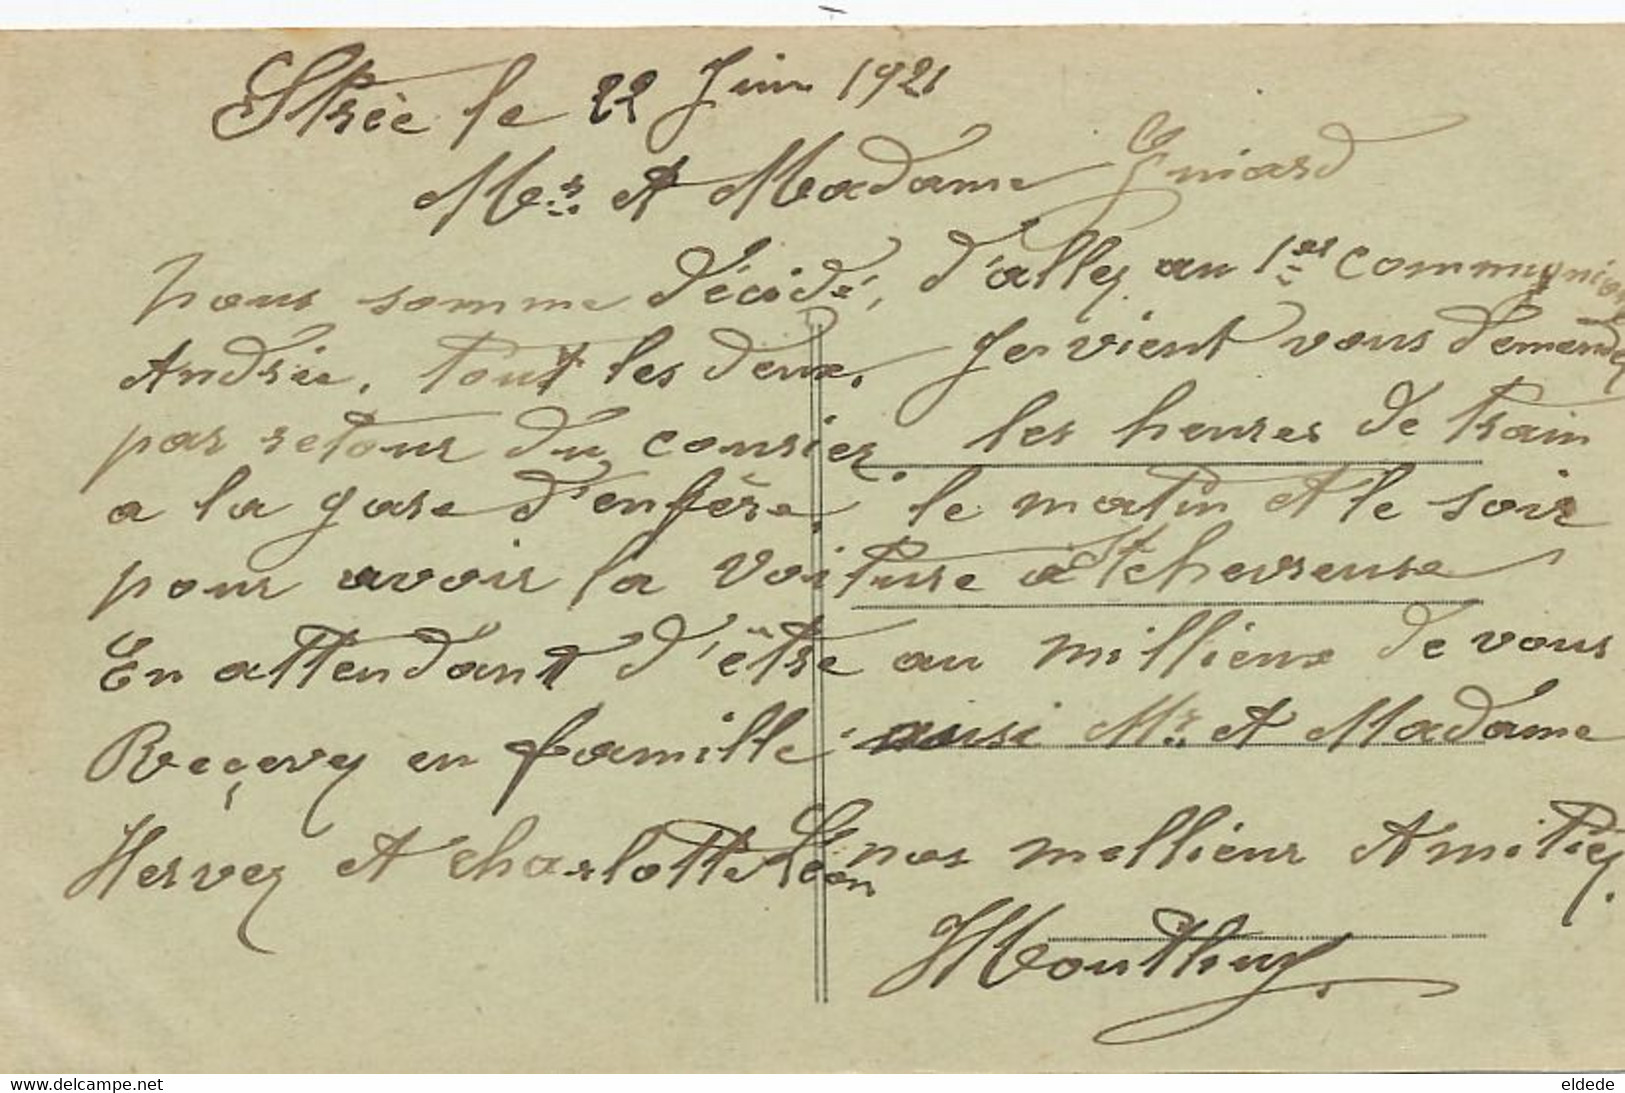 Strée le 22 Juin 1921
Mr. et Madame Guiard
nous somme décidé, d'allez au 1er Communion
Andrée, tout les deux. Je vient vous demandez
par retour du courier. les heures de train
a la gare d'enfère, le matin et le soir
pour avoir la voiture a St chevreuse
En attendant d'être au millieux de vous
Reçevez en famille ausi Mr. et Madame
Hervez et charlotte Léon nos mellieur Amitiez.
HMouthuy.
www.delcampe.net
eldede